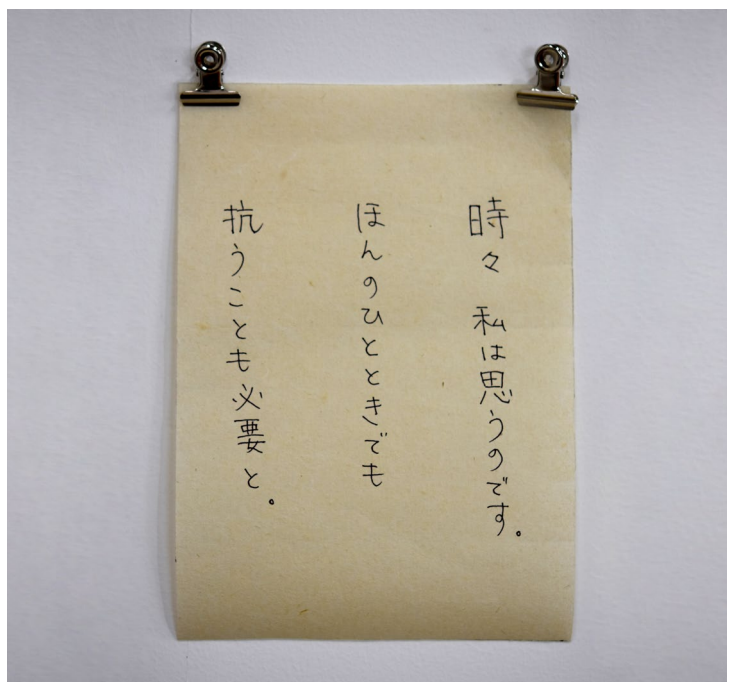 時々 私は思うのです。
ほんのひとときでも
抗うことも必要と。